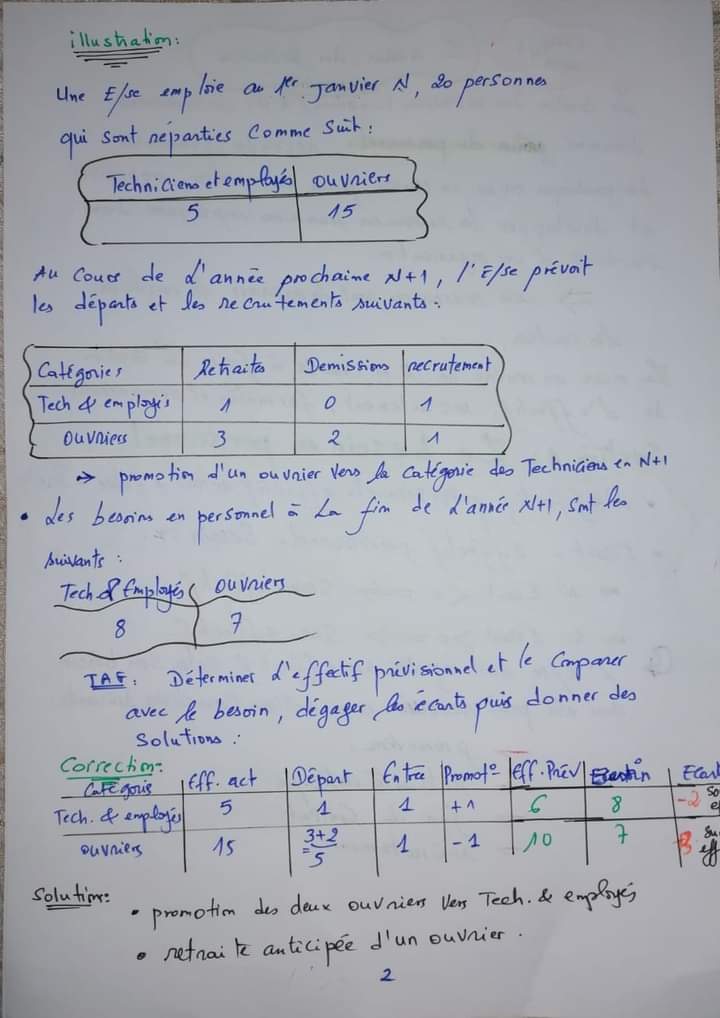 illustration:
Une E/se emploie au 1er Janvier N, 20 personnes
qui sont réparties Comme Suit:
Techniciens et employés ouvriers
5 15
Au Cours de L'année prochaine N+1, l'E/se prévoit
les départs et les recrutements suivants:
Catégories Retraités Demissions recrutement
Tech & employés 1 0 1
ouvriers 3 2 1
→ promotion d'un ouvrier vers la Catégorie des Techniciens en N+1
• Les besoins en personnel à La fin de L'année N+1, sont les
suivants:
Tech & Employés ouvriers
8 7
TAF: Déterminer L'effectif prévisionnel et le Comparer
avec le besoin, dégager les écarts puis donner des
Solutions:
Correction:
Catégoris Eff. act Départ Entrée Promot° Eff. Prév Ecart
Tech. & employés 5 1 1 +1 6 8 -2
ouvriers 15 3+2 =5 1 -1 10 7 eff
Solutions:
• promotion des deux ouvriers vers Tech. & employés
• retraite anticipée d'un ouvrier.
2